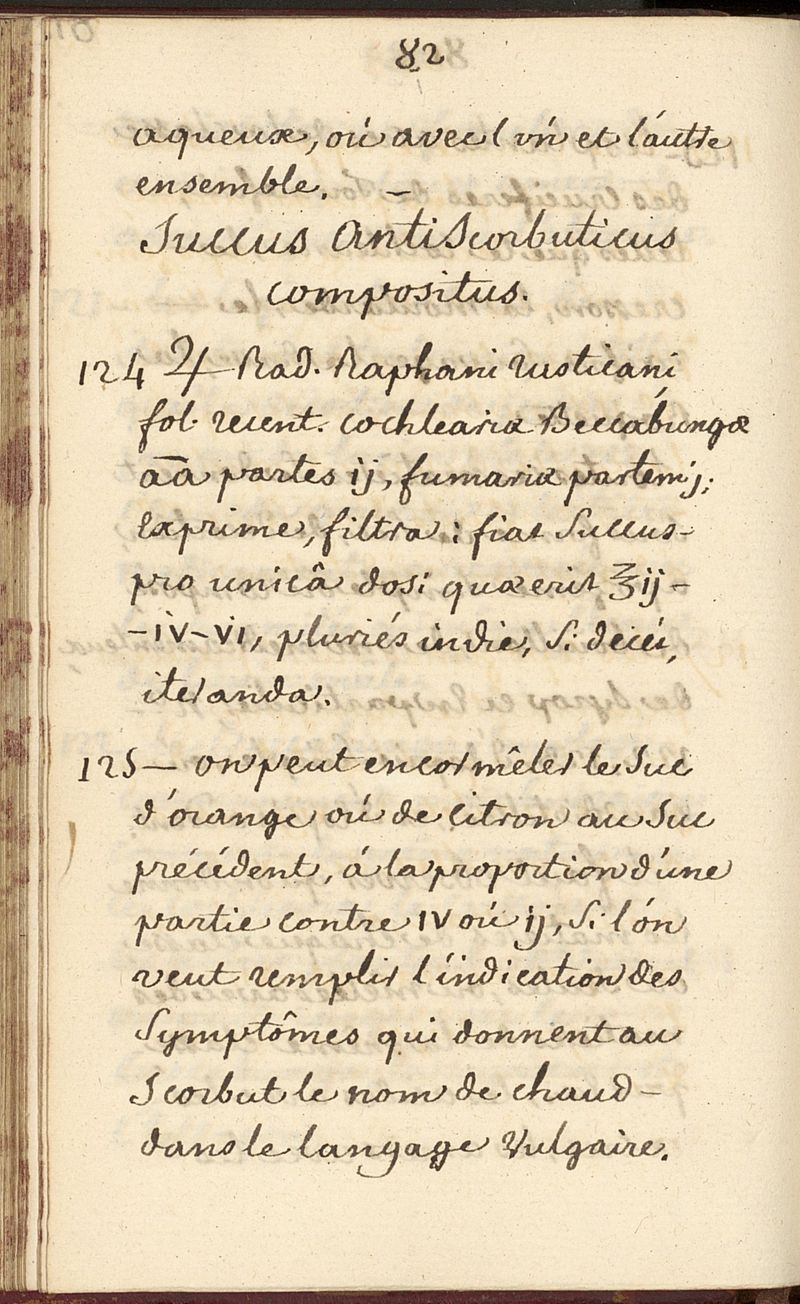 82
aqueuse, oú avec l'vń et l'áutre
ensemble. –
Succus AntiScorbuticus
compositus.
124 ♃ Rad. Raphani rusticani
fol. recent. cochleariæ Beccábungæ
āā partes ij, fumariæ partem j;
Exprime, filtra : fiat Succus-
pro unicâ dosi quæ erit ℥ij-
-iv-vi, pluriés in die, Si decét,
iteranda.
125 — on peut encor mêler le Suc
d'orange oú de citron au Suc
précédent, á la proportion d'úne
partie contre IV oú ij, Si l'ón
veut remplir l'índication des
Symptômes qui donnent au
Scorbut le nom de chaud –
dans le langage Vulgaire.